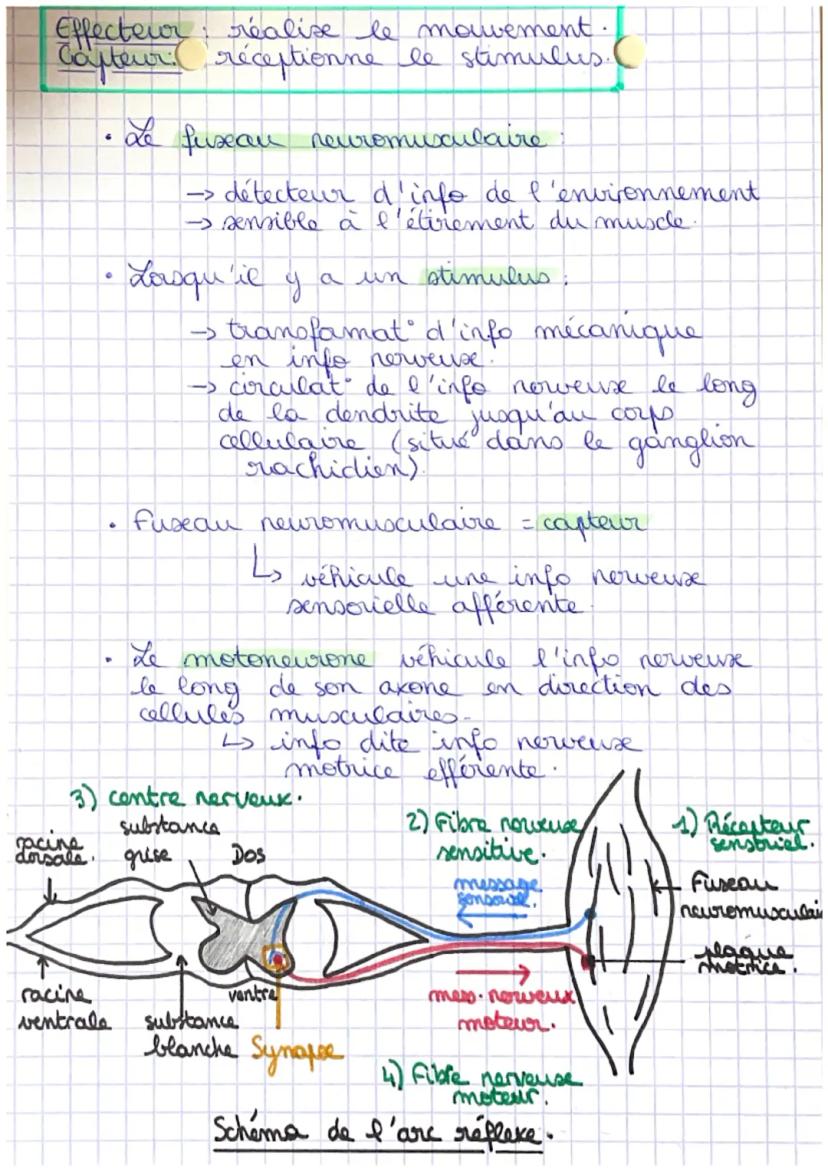 Effecteur : réalise le mouvement.
Capteur : réceptionne le stimulus.
• Le fuseau neuromusculaire :
→ détecteur d'info de l'environnement
→ sensible à l'étirement du muscle.
• Lorsqu'il y a un stimulus :
→ transfomat° d'info mécanique
en info nerveuse.
→ circulat° de l'info nerveuse le long
de la dendrite jusqu'au corps
cellulaire (situé dans le ganglion
rachidien).
• Fuseau neuromusculaire = capteur
↳ véhicule une info nerveuse
sensorielle afférente.
• Le motoneurone véhicule l'info nerveuse
le long de son axone en direction des
cellules musculaires.
↳ info dite info nerveuse
motrice efférente.
3) centre nerveux.
racine
dorsale.
substance
grise
Dos
2) Fibre nerveuse
sensitive.
message
sensoriel.
1) Récepteur
sensoriel.
Fuseau
neuromusculai
plaque
motrice.
racine
ventrale
substance
blanche
ventre
Synapse
mess. nerveux
moteur.
4) Fibre nerveuse
moteur.
Schéma de l'arc réflexe.